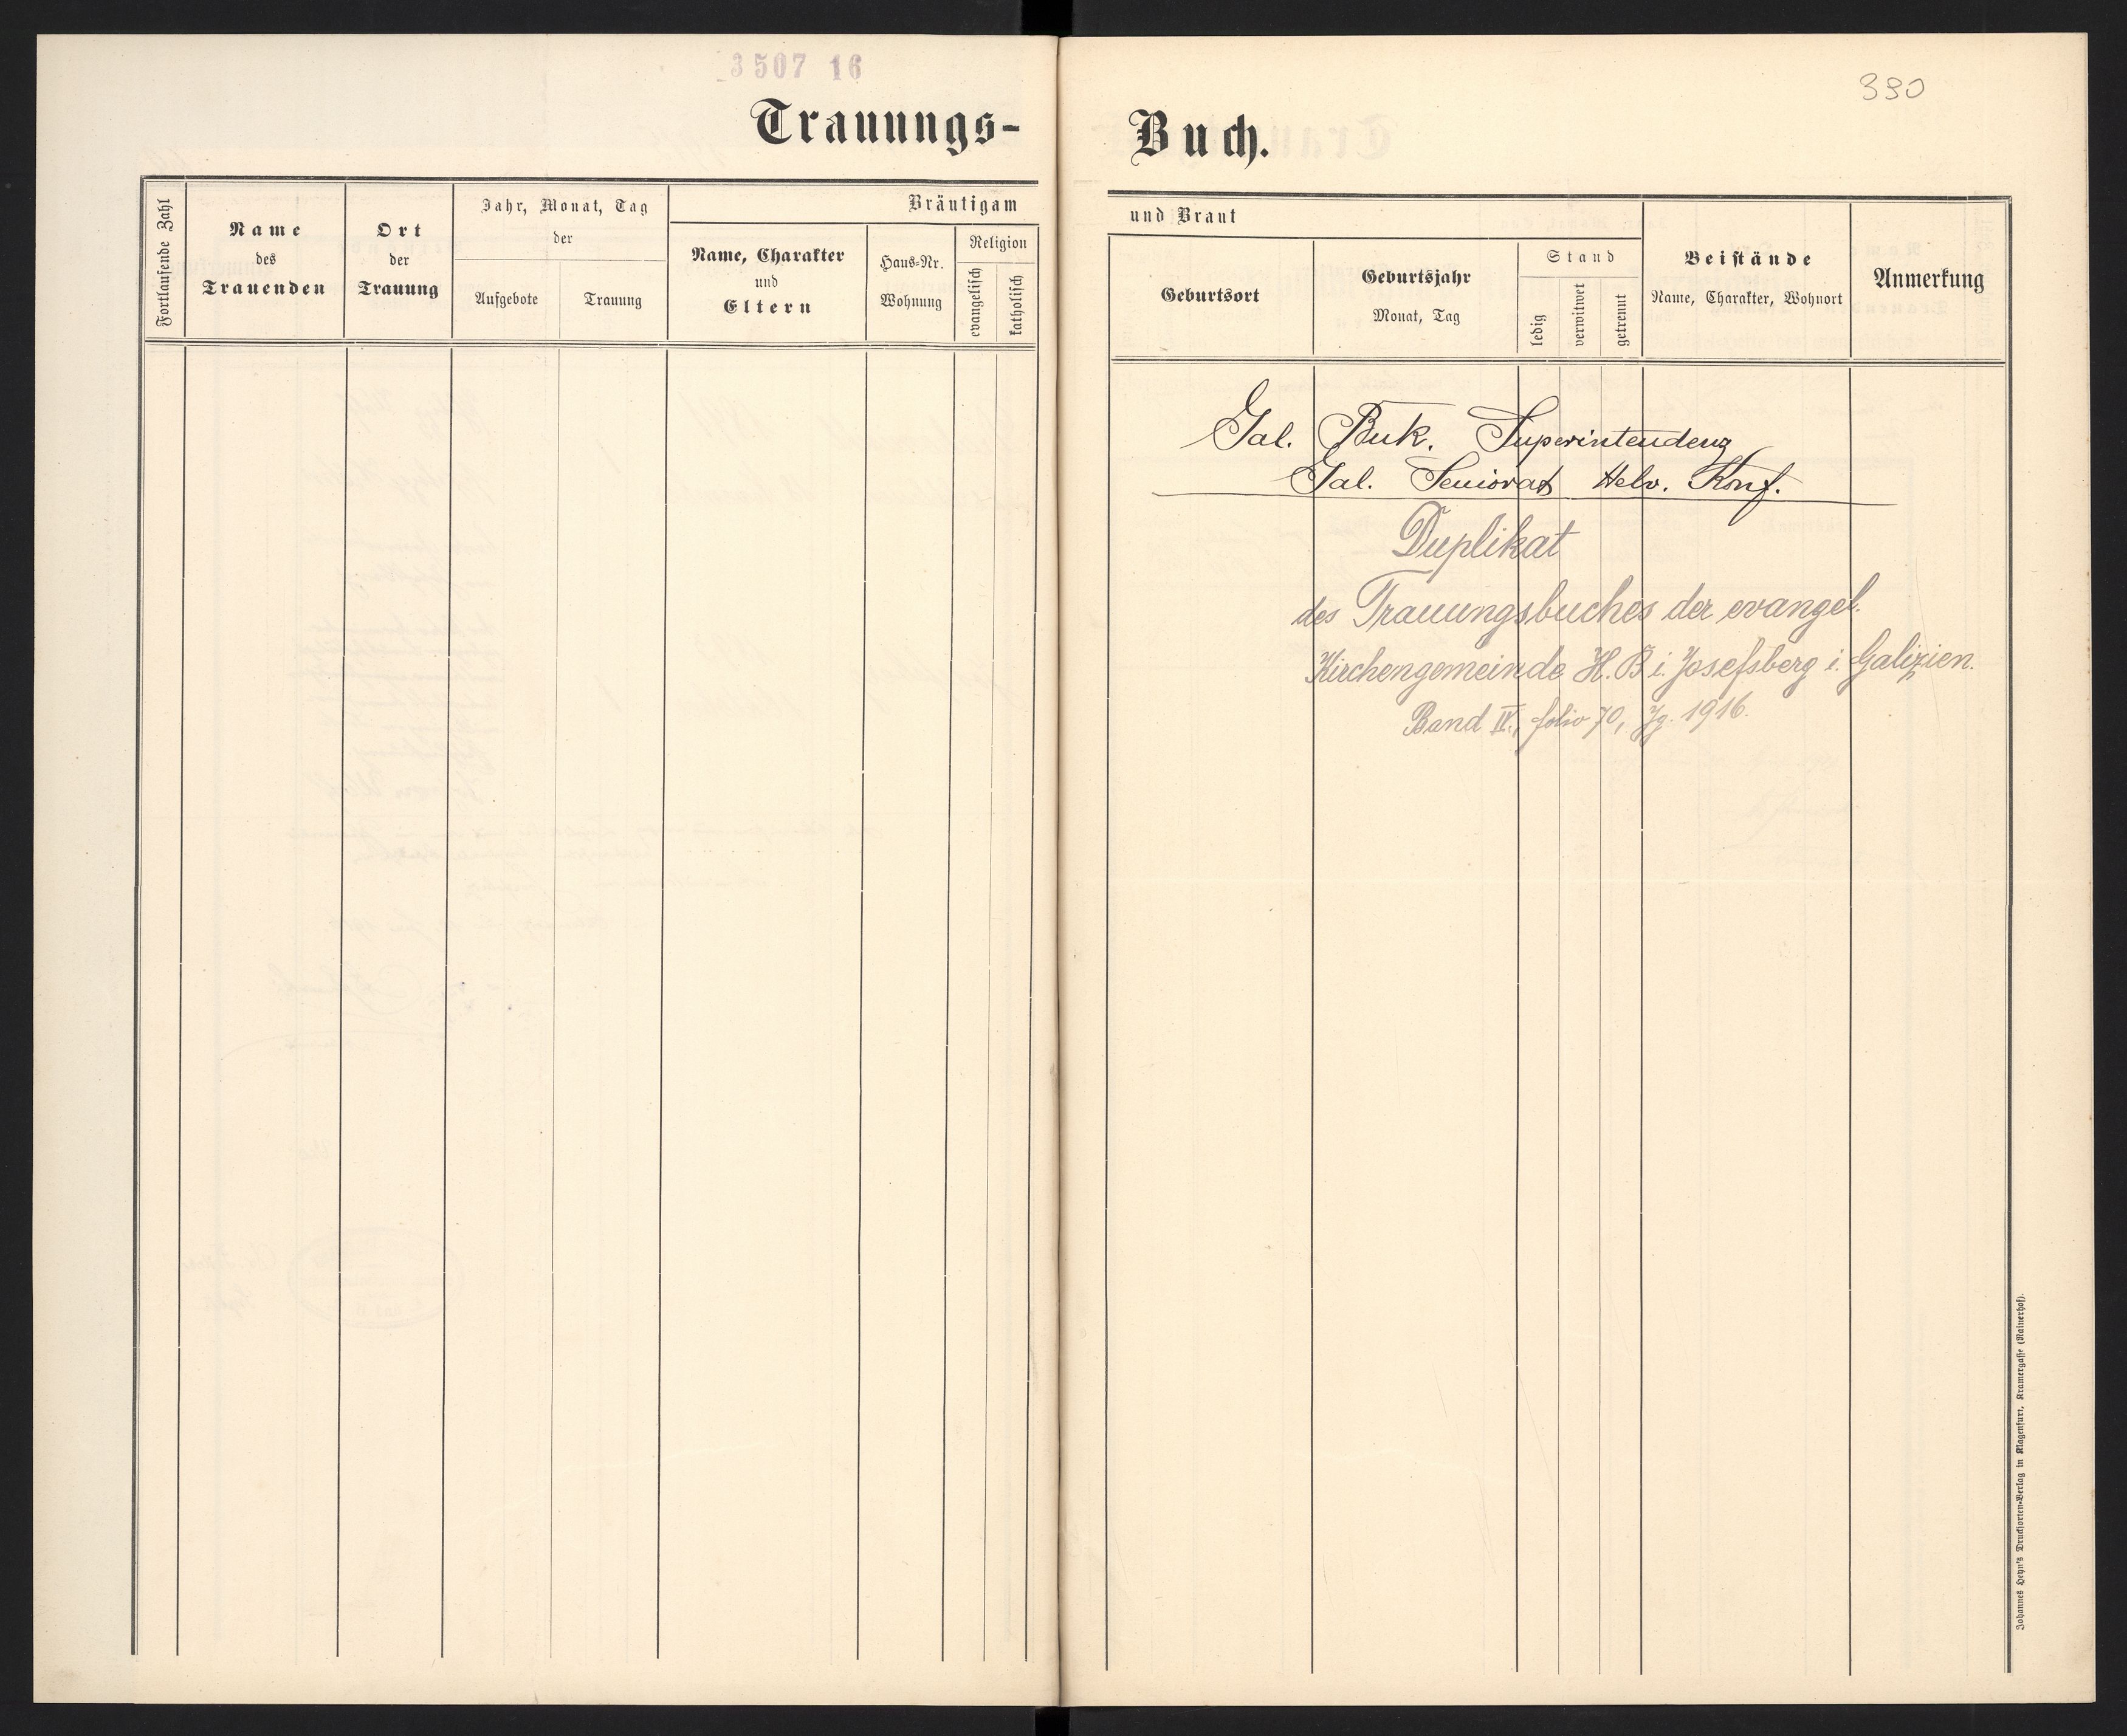 3507 16
330
Trauungs-Buch.
Fortlaufende Zahl
Name
des
Trauenden
Ort
der
Trauung
Jahr, Monat, Tag
der
Aufgebote
Trauung
Bräutigam und Braut
Name, Charakter
und
Eltern
Haus-Nr.
Wohnung
Religion
evangelisch
katholisch
Geburtsort
Geburtsjahr
Monat, Tag
Stand
ledig
verwitwet
getrennt
Beistände
Name, Charakter, Wohnort
Anmerkung
Gal. Buk. Superintendenz
Gal. Seniorat Helv. Konf.
Duplikat
des Trauungsbuches der evangel.
Kirchengemeinde H. B. i. Josefsberg i. Galizien.
Band IV., folio 70, Jg. 1916.
Johannes Heyn's Drucksorten-Verlag in Klagenfurt, Kramergasse (Rainerhof).